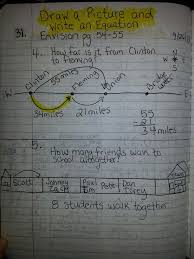 Draw a Picture and
31. Write an Equation
Envision pg. 54-55
4. How far is it from Clinton
to Fleming?
N
W E
S
Clinton 55 miles Fleming Union
W E
34 miles 21 miles
55
21
34 miles
5. How many friends walk to
school altogether?
Scott Johnny Zach Paul Tim Pete Dan Corey
8 students walk together